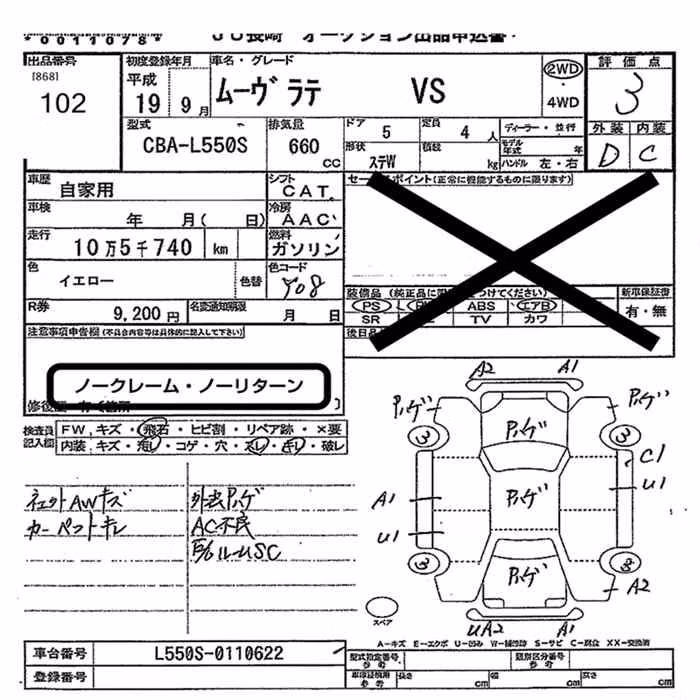 *0011078*
JU長崎 オークション出品申込書
出品番号
[868]
102
初度登録年月
平成
19 9 月
車名・グレード
ムーヴ ラテ VS
2WD
・
4WD
評価点
3
外装 内装
D C
型式
CBA-L550S
排気量
660
CC
ドア 5 定員 4 人
形状 ステW 積載 kg
ディーラー・並行
モデル年式 年
ハンドル 左・右
車歴 自家用
シフト CAT
車検 年 月( 日)
冷房 AAC
走行 10万5千740 km
燃料 ガソリン
色 イエロー 色替
色コード Y08
R券 9,200円
名変通知期限 月 日
セールスポイント(正常に機能するものに限ります)
装備品(純正品に限り
つけてください)
PS ABS エアB
SR TV カワ
新車保証書
有・無
後日品
注意事項申告欄(不具合内容等は具体的に記入して下さい)
ノークレーム・ノーリターン
検査員
記入欄
FW,キズ・飛石・ヒビ割・リペア跡・×要
内装,キズ・汚レ・コゲ・穴・スレ・キレ・破レ
外装Pハゲ
カーペットキレ
AC不良
A2 A1
Pハゲ Pハゲ
Pハゲ
3 3
C1
U1
A1
Pハゲ
U1
3 3
Pハゲ
A2
スペア
UA2 A1
A-キズ E-エクボ U-凹み W-補修跡 S-サビ C-腐食 XX-交換済
車台番号 L550S-0110622
登録番号
型式指定番号
参考
類別区分番号
参考
車体検査用
参考
長さ cm 幅 cm 高さ cm